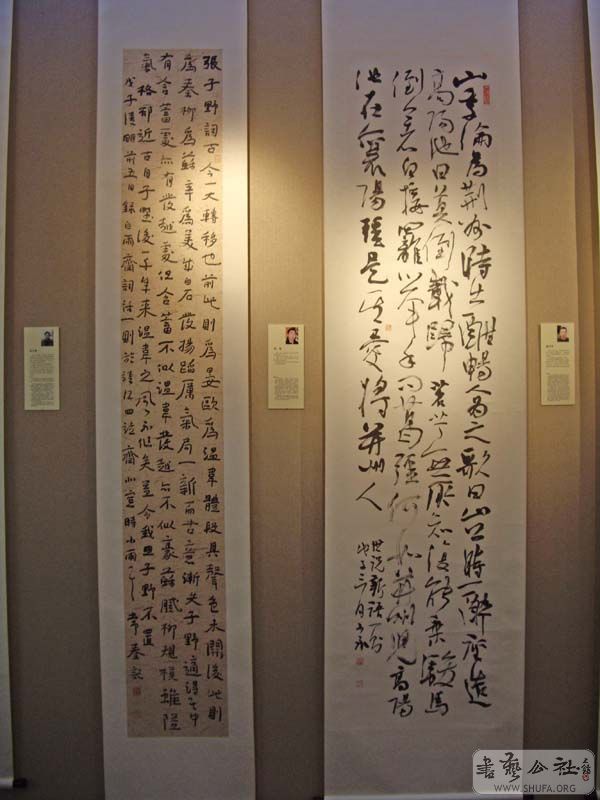 山季倫為荊州時出酣暢人為之歌曰山公時一醉徑造
高陽池日莫倒載歸茗艼無所知復能乘駿馬
倒著白接籬舉手問葛彊何如并州兒高陽
池在襄陽彊是其愛將并州人
世説新語一則
戊子三月
張子野詞古今一大轉移也前此則為晏歐為溫韋體段具聲色未開後此則
為秦柳為蘇辛為美成白石發揚蹈厲氣局一新而古意漸失子野適得其中
有含蓄處亦有發越處但含蓄不似溫韋發越亦不似豪蘇膩柳規模雖隘
氣格卻近古自子野後一千年來溫韋之風不作矣益令我思子野不置
戊子清明前五日錄白雨齋詞話一則於 齋北窗時小雨 常春
書藝公社
WWW.SHUFA.ORG